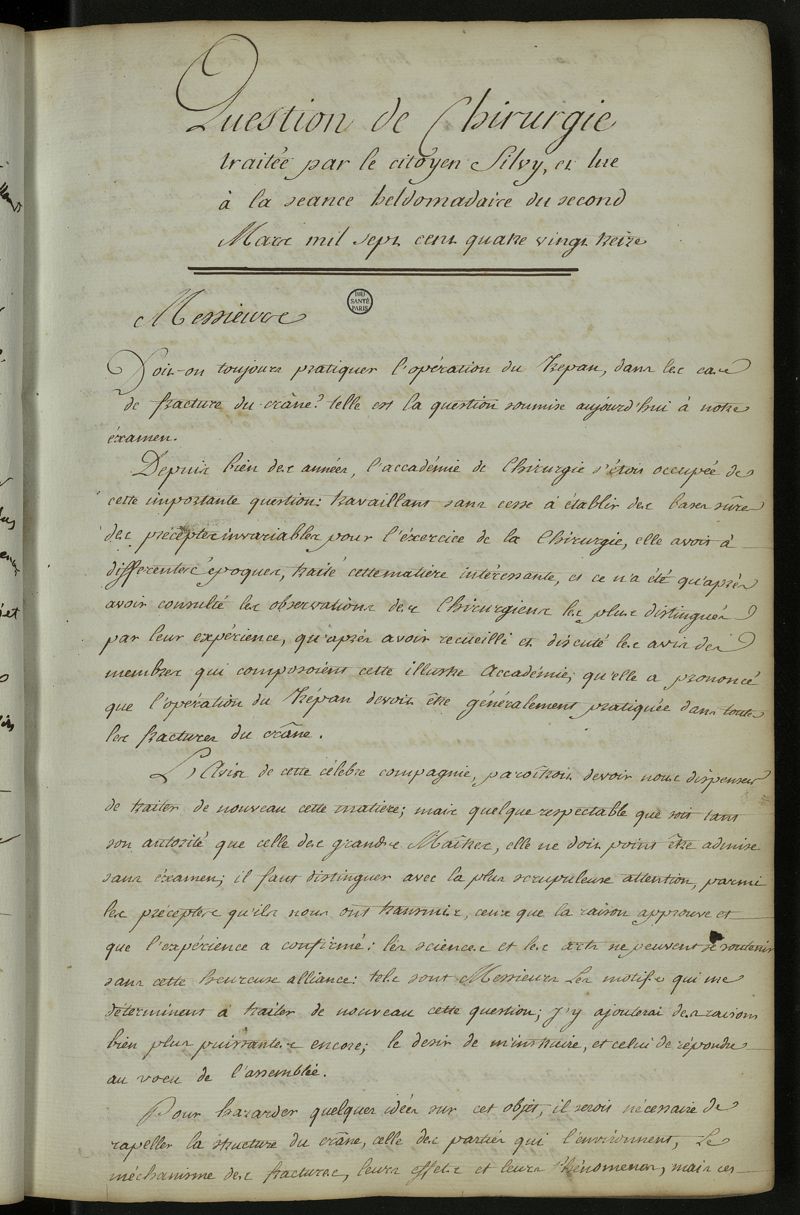 Question de Chirurgie
traitée par le citoyen Silvy, et lue
à la seance hebdomadaire du second
Mars mil sept cent quatre vingt treize
BIU
SANTÉ
PARIS
Messieurs
Doit-on toujours pratiquer l'opération du trépan, dans les cas
de fracture du crâne? telle est la question soumise aujourd'hui à notre
éxamen.
Depuis bien des années, l'accadémie de Chirurgie s'étoit occupée de
cette importante question: travaillant sans cesse à établir des bases sûres
des préceptes invariables pour l'éxercice de la Chirurgie, elle avoit à
differentes époques, traité cette matière intéressante, et ce n'a été qu'après
avoir consulté les observations des Chirurgiens les plus distingués
par leur expérience, qu'après avoir recueilli et discuté les avis des
membres qui composoient cette illustre Accadémie, qu'elle a prononcé
que l'opération du Trépan devoit être généralement pratiquée dans toutes
les fractures du crâne.
L'Avis de cette célébre compagnie, paroîtroit devoir nous dispenser
de traiter de nouveau cette matière; mais quelque respectable que soit tant
son autorité que celle des grands Maîtres, elle ne doit point être admise
sans éxamen; il faut distinguer avec la plus scrupuleuse attention, parmi
les préceptes qu'ils nous ont transmis, ceux que la raison approuve et
que l'expérience a confirmé: les sciences et les arts ne peuvent se soutenir
sans cette heureuse alliance: tels sont Messieurs Les motifs qui me
déterminent à traiter de nouveau cette question; J'y ajouterai des raisons
bien plus puissantes encore; le desir de m'instruire, et celui de répondre
au voeu de l'assemblée.
Pour hazarder quelques idées sur cet objet, il seroit nécessaire de
rapeller la structure du crâne, celle des parties qui l'environnent, Le
méchanisme des fractures, leurs effets et leurs Phénomenes, mais ces